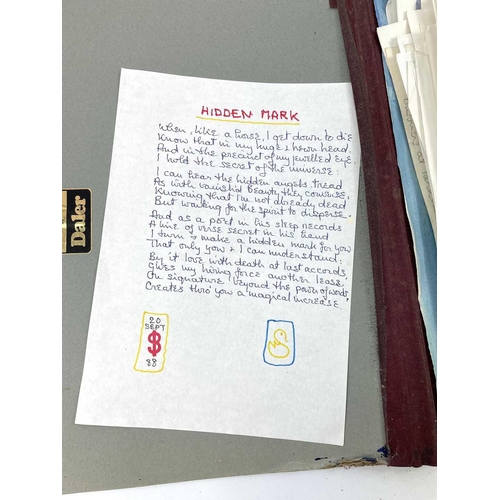 HIDDEN MARK
When, like a horse, I get down to die
Know that in my huge & hewn head,
And in the precinct of my jewelled eye,
I hold the secret of the universe:
I can hear the hidden angels tread
As with vanished beauty they converse,
Knowing that I'm not already dead
But waiting for the spirit to disperse.
And as a poet in his sleep records
A line of verse secret in his head
I turn & make a hidden mark for you
That only you & I can understand:
By it love with death at last accords,
Gives my living force another lease
Our signature beyond the power of words
Creates thro' you a magical increase.
20
SEPT
$
88
Daler